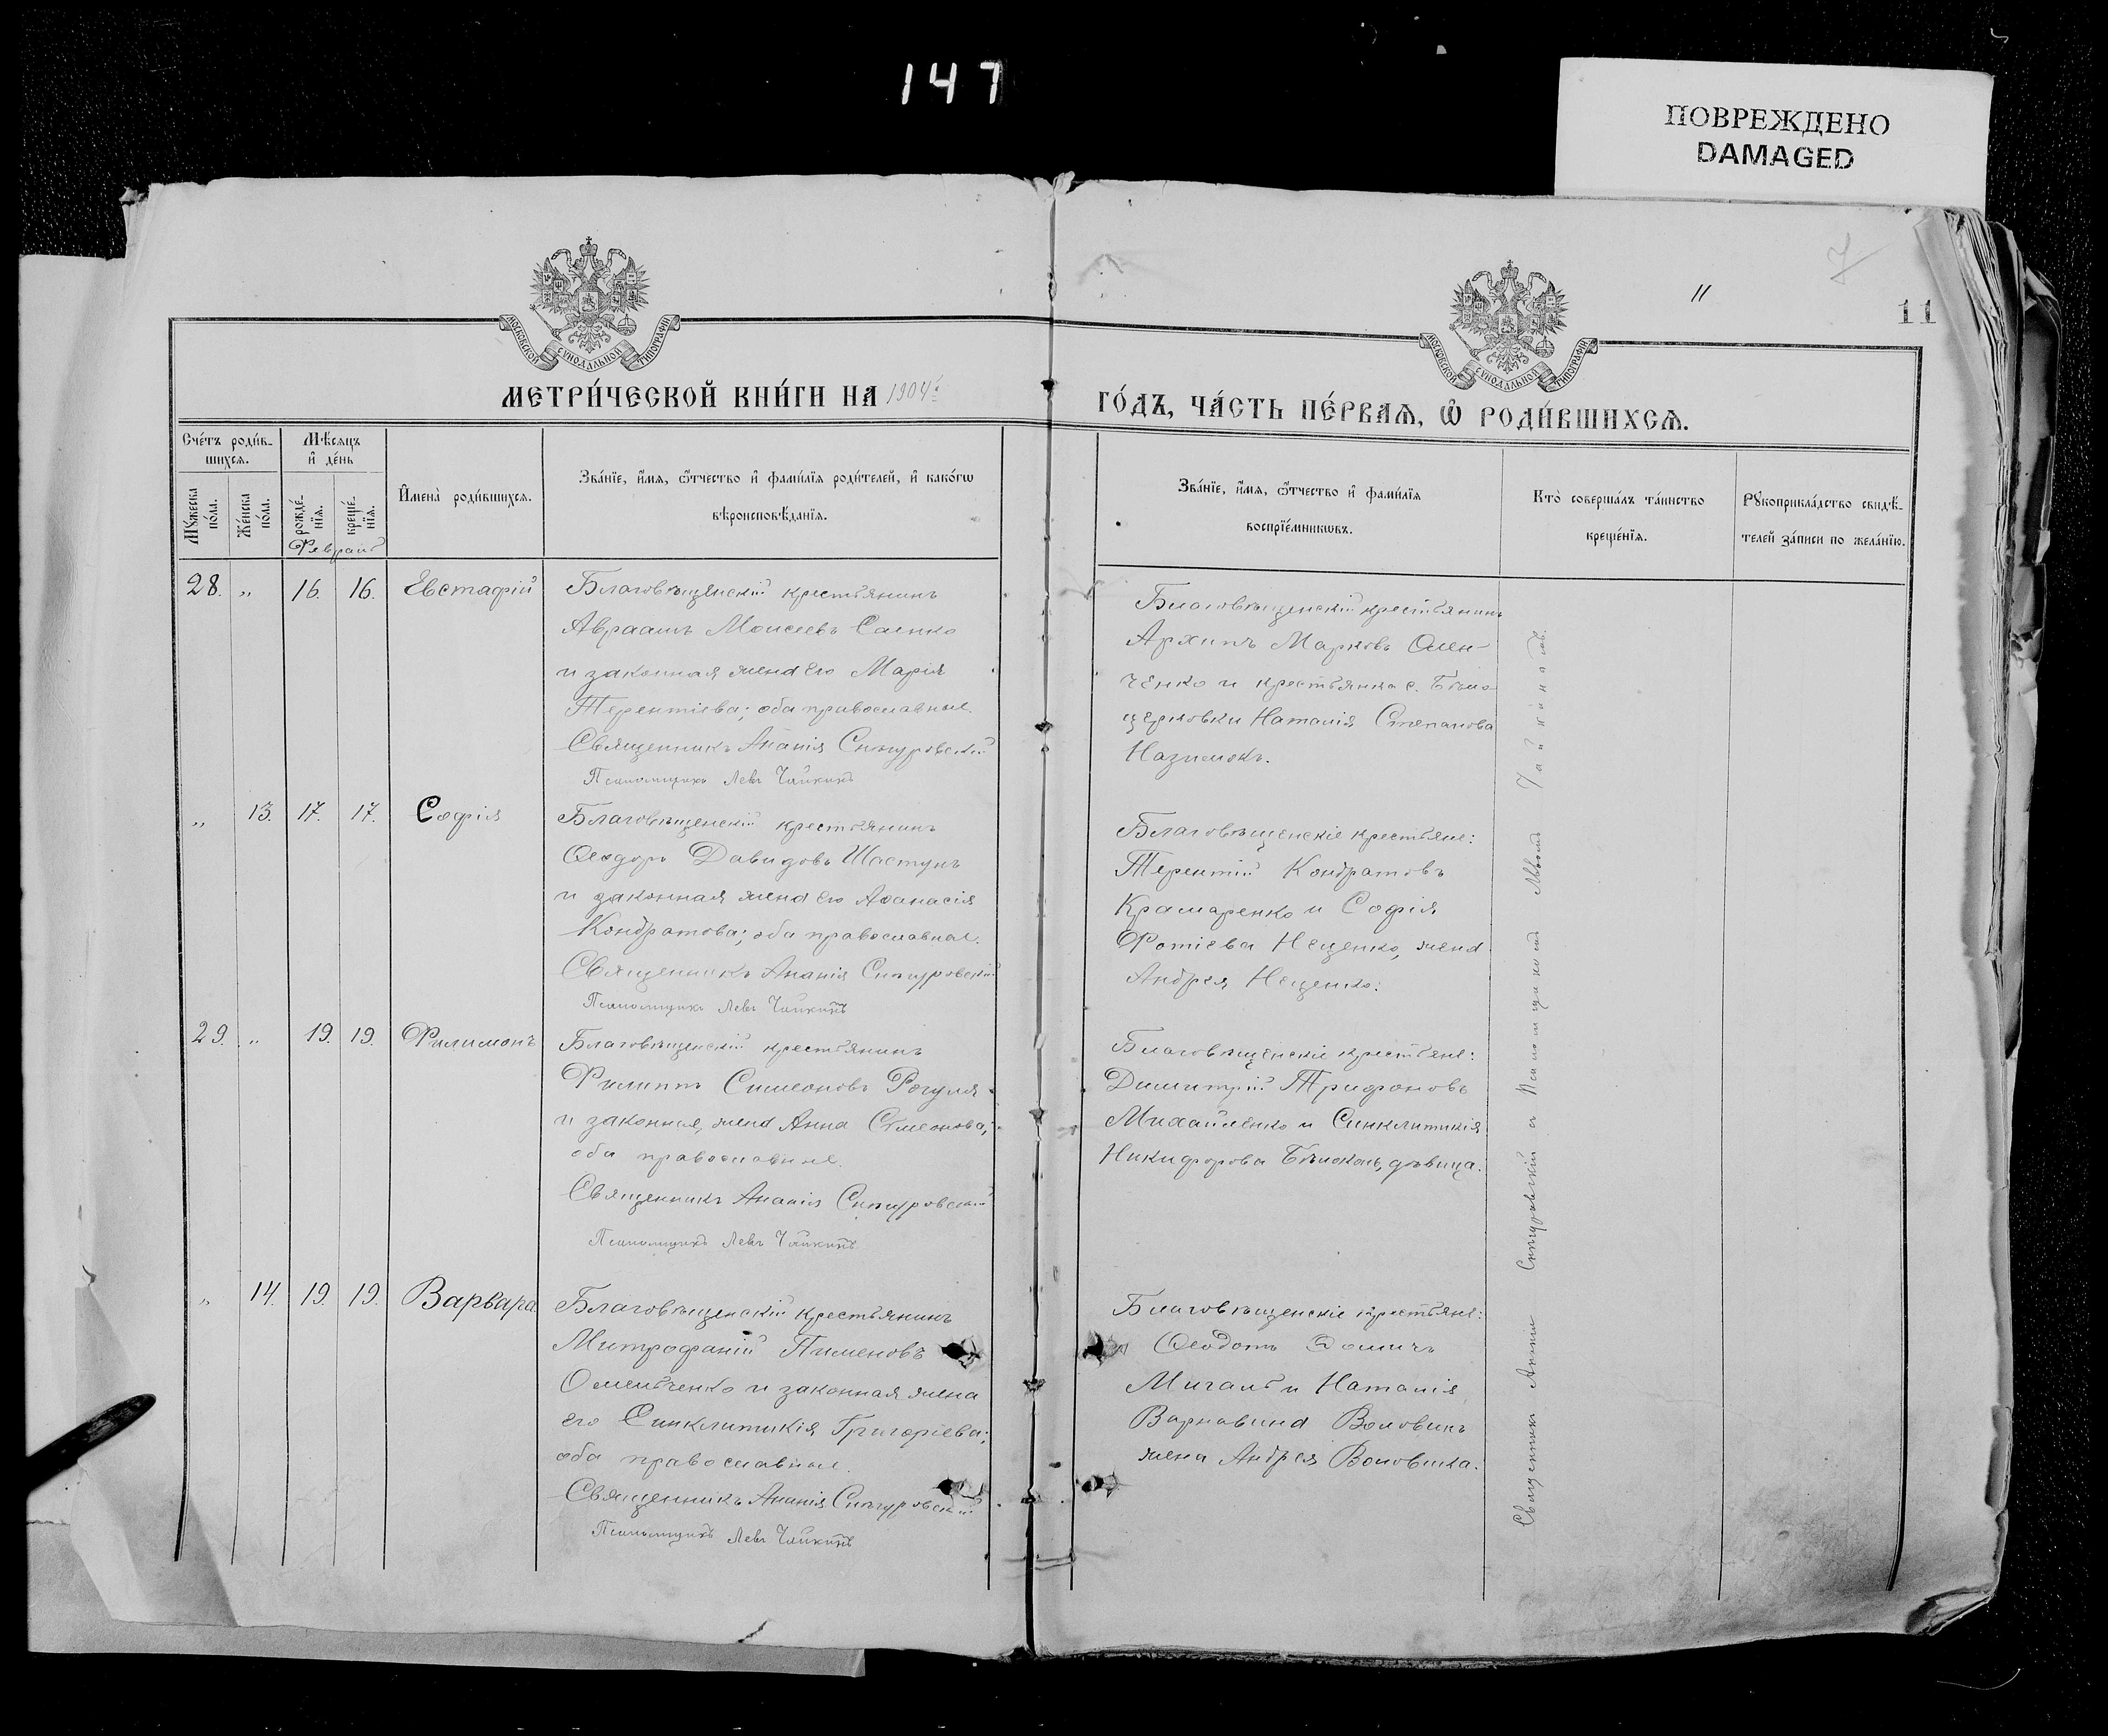 147
ПОВРЕЖДЕНО
DAMAGED
7
11
11
МОСКОВСКОЙ СѴНОДАЛЬНОЙ ТИПОГРАФІИ
МОСКОВСКОЙ СѴНОДАЛЬНОЙ ТИПОГРАФІИ
МЕТРИ́ЧЕСКОЙ КНИ́ГИ НА 1904
ГО́ДЪ, ЧА́СТЬ ПЕ́РВАѦ, Ѡ҆ РОДИ́ВШИХСѦ.
Сче́тъ роди́в-
шихсѧ.
Мѣ́сѧцъ
и҆ де́нь
Мꙋ́жеска по́ла.
Же́нска по́ла.
рожде́-нїѧ.
креще́-нїѧ.
И҆мена̀ роди́вшихсѧ.
Зва́нїе, и҆́мѧ, ѻ҆́тчество и҆ фами́лїѧ роди́телей, и҆ како́гѡ
вѣроисповѣ́данїѧ.
Зва́нїе, и҆́мѧ, ѻ҆́тчество и҆ фами́лїѧ
воспрїе́мникѡвъ.
Кто̀ соверша́лъ та́инство
креще́нїѧ.
Рꙋкоприкла́дство свидѣ́-
телей за́писи по жела́нїю.
Февраль
28. „ 16. 16. Евстафій
Благовѣщенскій крестьянинъ
Авраамъ Моисеевъ Саенко
и законная жена его Марія
Терентіева; оба православные.
Священникъ Ананія Снѣгуровскій
Псаломщикъ Левъ Чайкинъ
Благовѣщенскій крестьянинъ
Архипъ Марковъ Омен-
ченко и крестьянка с. Бѣло-
церковки Наталія Степанова
„ 13. 17. 17. Софія
Благовѣщенскій крестьянинъ
Ѳеодоръ Давидовъ Шастунъ
и законная жена его Аѳанасія
Кондратова; оба православные.
Священникъ Ананія Снѣгуровскій
Псаломщикъ Левъ Чайкинъ
Благовѣщенскіе крестьяне:
Терентій Кондратовъ
Крамаренко и Софія
Фотіева Нещенко, жена
Андрея Нещенко.
29. „ 19. 19. Филимонъ
Благовѣщенскій крестьянинъ
Филиппъ Симеоновъ Рогуля
и законная жена Анна Симеонова;
оба православные.
Священникъ Ананія Снѣгуровскій
Псаломщикъ Левъ Чайкинъ
Благовѣщенскіе крестьяне:
Димитрій Трифоновъ
Михайленко и Синклитикія
Никифорова дѣвица.
„ 14. 19. 19. Варвара
Благовѣщенскій крестьянинъ
Митрофаній Пименовъ
Омельченко и законная жена
его Синклитикія Григоріева;
оба православные.
Священникъ Ананія Снѣгуровскій
Псаломщикъ Левъ Чайкинъ
Благовѣщенскіе крестьяне:
Ѳеодотъ
и Наталія
Варнавина Воловикъ
жена Андрея Воловика.
Священник Ананіи Снѣгуровскій и Псаломщикомъ Львомъ Чайкинымъ.